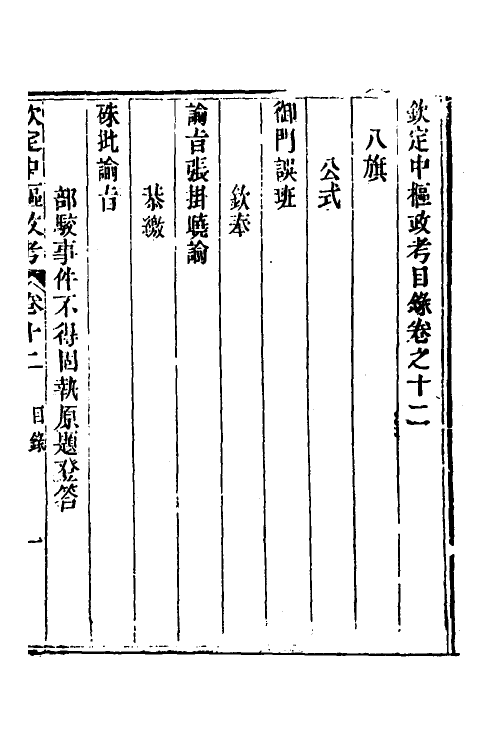 欽定中樞政考目錄卷之十二
八旗
公式
御門誤班
欽奉
諭旨張掛曉諭
恭繳
硃批諭旨
部駁事件不得固執原題登答
欽定中樞政考 卷十二 目錄 一